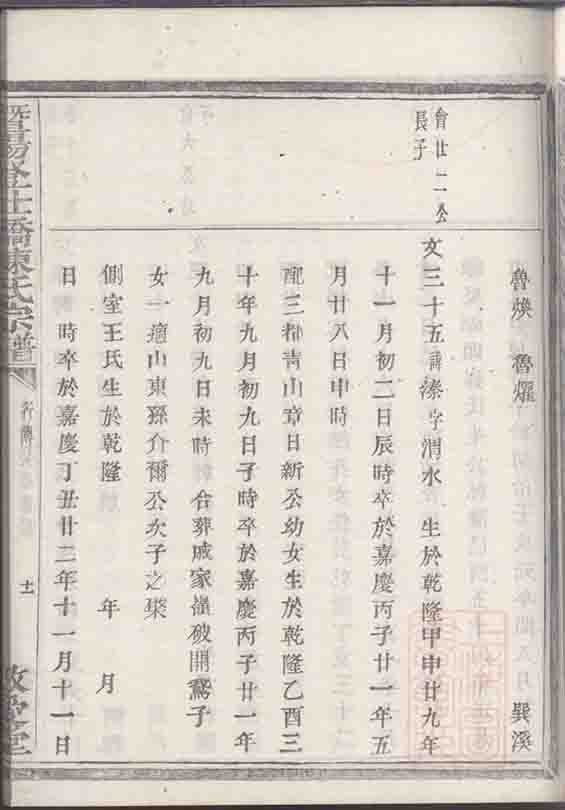 魯煥 魯燿 巽溪
曾仕二公
長子
文三十五諱溱字渭水 生於乾隆甲申廿九年
十一月初二日辰時卒於嘉慶丙子廿一年五
月廿八日申時
配三都青山章日新公幼女生於乾隆乙酉三
十年九月初九日子時卒於嘉慶丙子廿一年
九月初九日未時 合葬戚家嶺破開鵞子
女一適山東孫介爾公次子之榮
側室王氏生於乾隆 年 月
日 時卒於嘉慶丁丑廿二年十一月十一日
暨陽 仕橋陳氏宗譜
行傳
十一
敬
堂